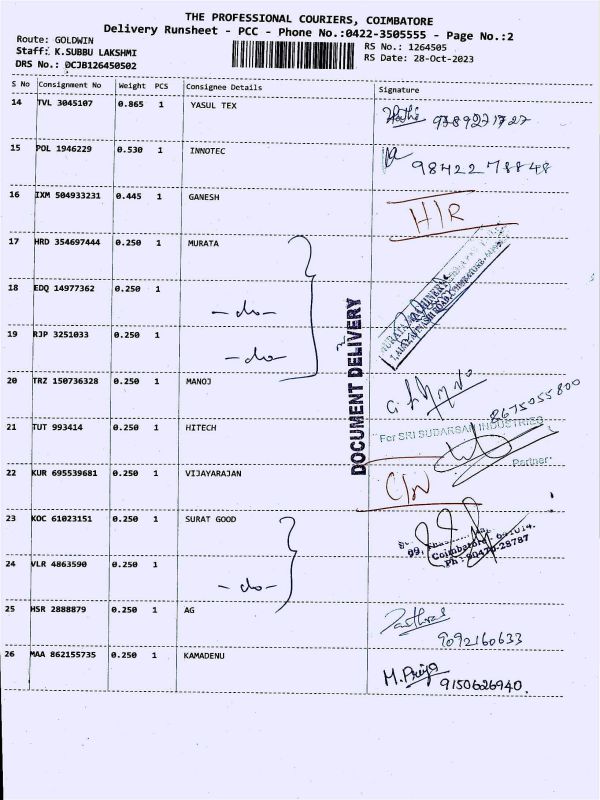 THE PROFESSIONAL COURIERS, COIMBATORE
Delivery Runsheet - PCC - Phone No.:0422-3505555 - Page No.:2
Route: GOLDWIN
RS No.: 1264505
Staff: K.SUBBU LAKSHMI
RS Date: 28-Oct-2023
DRS No.: DCJB126450502
S No Consignment No Weight PCS Consignee Details Signature
14 TVL 3045107 0.865 1 YASUL TEX 9789271727
15 POL 1946229 0.530 1 INNOTEC 9842278848
16 IXM 504933231 0.445 1 GANESH H/R
17 HRD 354697444 0.250 1 MURATA
18 EDQ 14977362 0.250 1 -do-
19 RJP 3251033 0.250 1 -do-
DOCUMENT DELIVERY
20 TRZ 150736328 0.250 1 MANOJ
8675055800
21 TUT 993414 0.250 1 HITECH For SRI SUDARSAN INDUSTRIES
Partner
22 KUR 695539681 0.250 1 VIJAYARAJAN C/N
23 KOC 61023151 0.250 1 SURAT GOOD
Coimbatore - 641014.
Ph: 90470-28787
24 VLR 4863590 0.250 1 -do-
25 HSR 2888879 0.250 1 AG
9092160633
26 MAA 862155735 0.250 1 KAMADENU M. Priya
9150626940.